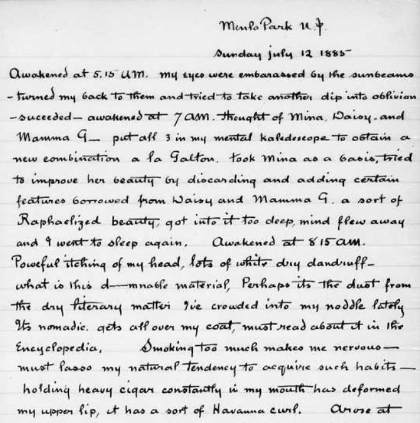 Menlo Park N.J.
Sunday july 12 1885
Awakened at 5.15 AM. my eyes were embarassed by the sunbeams
- turned my back to them and tried to take another dip into oblivion
- succeeded - awakened at 7 AM. thought of Mina, Daisy, and
Mamma G - put all 3 in my mental kaledescope to obtain a
new combination a la Galton. took Mina as a basis, tried
to improve her beauty by discarding and adding certain
features borrowed from Daisy and Mamma G. a sort of
Raphaelized beauty, got into it too deep, mind flew away
and I went to sleep again. Awakened at 8 15 am.
Powerful itching of my head, lots of white dry dandruff -
what is this d-mnable material, Perhaps its the dust from
the dry literary matter I've crowded into my noddle lately
Its nomadic. gets all over my coat, must read about it in the
Encyclopedia. Smoking too much makes me nervous -
must lasso my natural tendency to acquire such habits -
holding heavy cigar constantly in my mouth has deformed
my upper lip, it has a sort of Havanna curl. Arose at